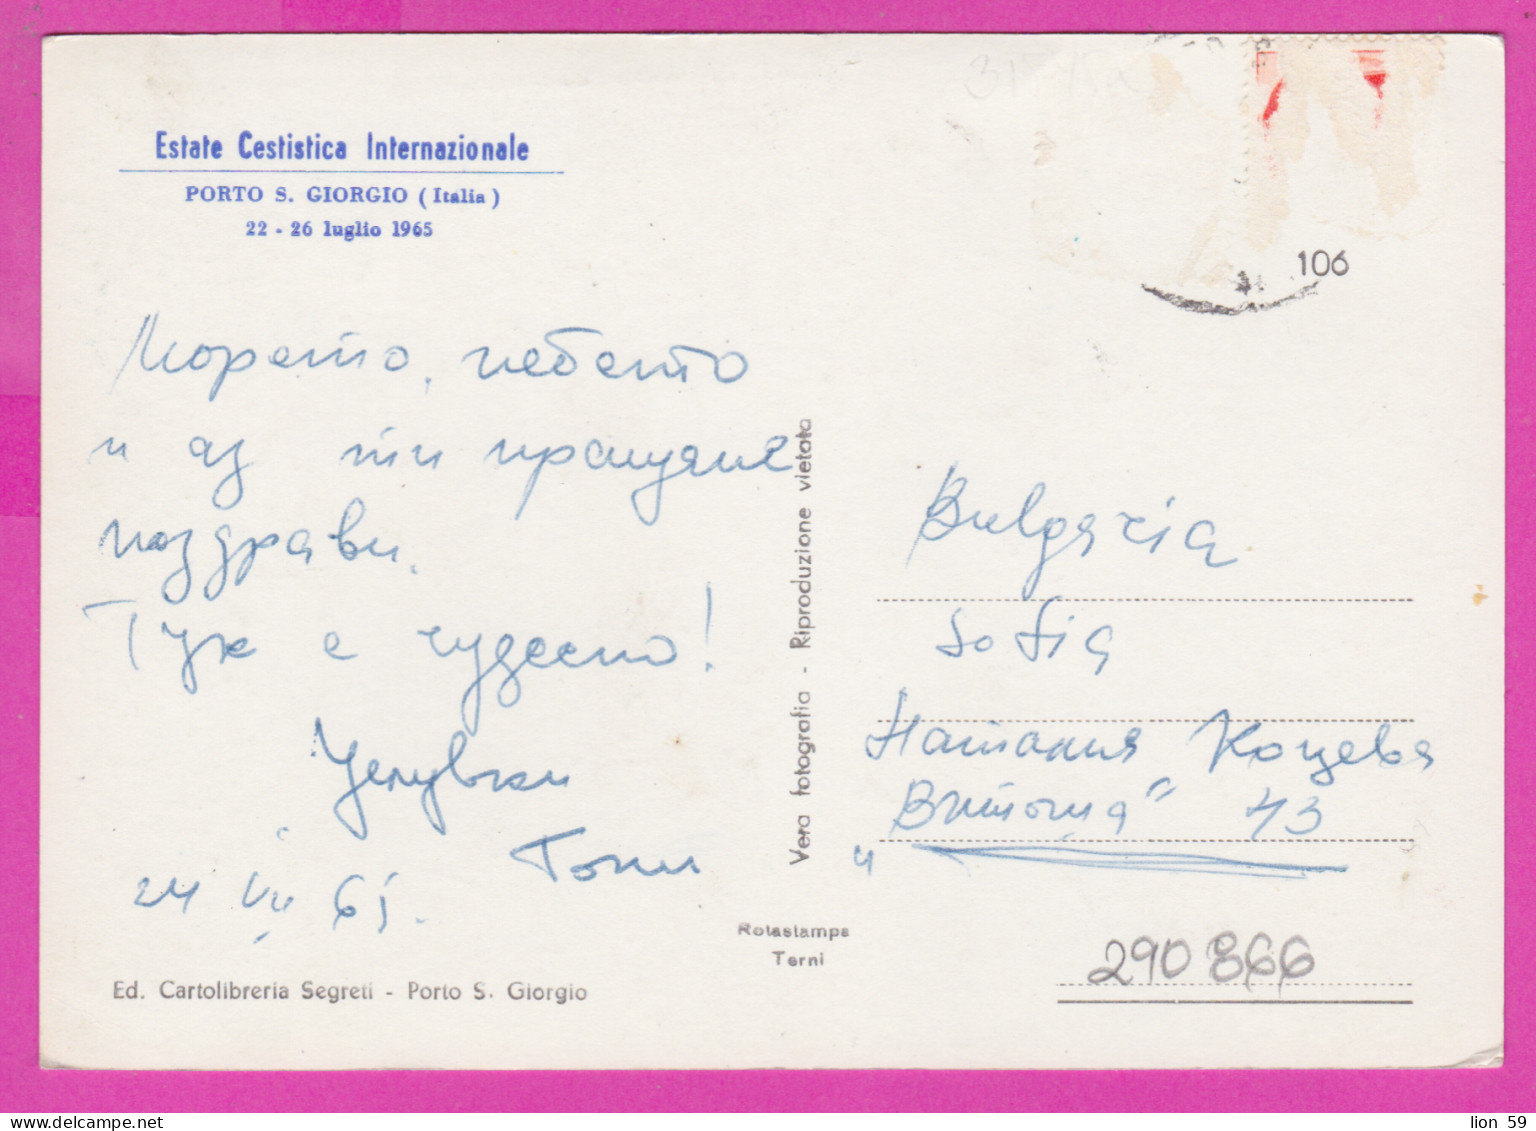 Estate Cestistica Internazionale
PORTO S. GIORGIO (Italia)
22 - 26 luglio 1965
106
Морето, небето
и аз ти пращаме
поздрави.
Тук е чудесно!
Целувки
Тони
24 VII 65.
Ed. Cartolibreria Segreti - Porto S. Giorgio
Vera fotografia - Riproduzione vietata
Rotastampa
Terni
Bulgaria
Sofia
Наталия Коцева
"Витоша" 43
290866
lion 59